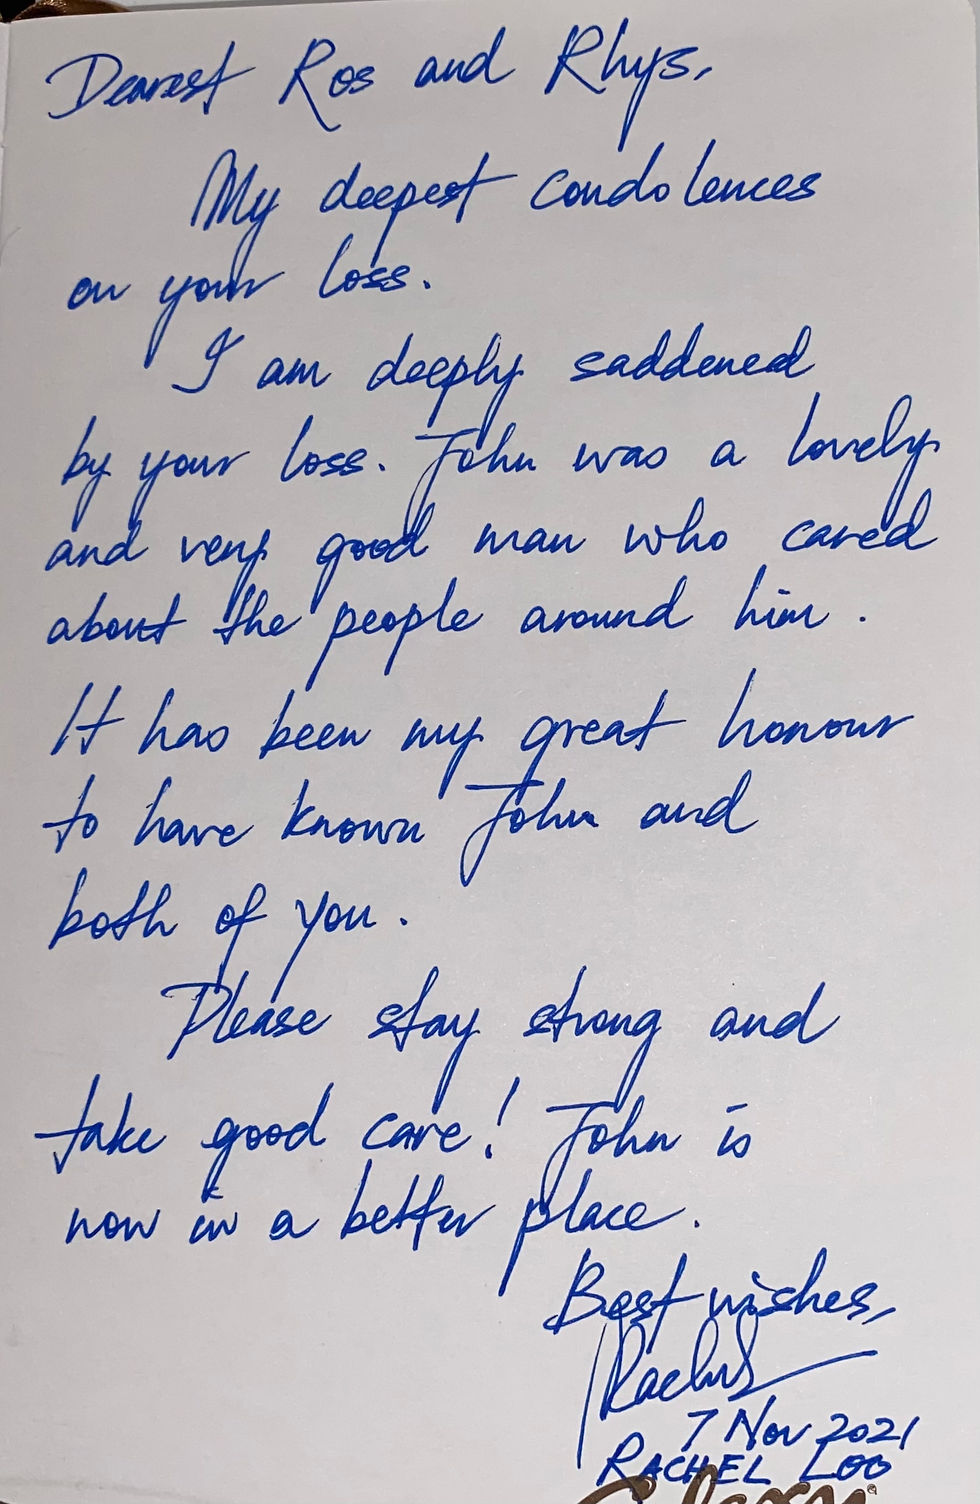 Dearest Ros and Rhys,
My deepest condolences
on your loss.
I am deeply saddened
by your loss. John was a lovely
and very good man who cared
about the people around him.
It has been my great honour
to have known John and
both of you.
Please stay strong and
take good care! John is
now in a better place.
Best wishes,
Rachel
7 Nov 2021
RACHEL LOO